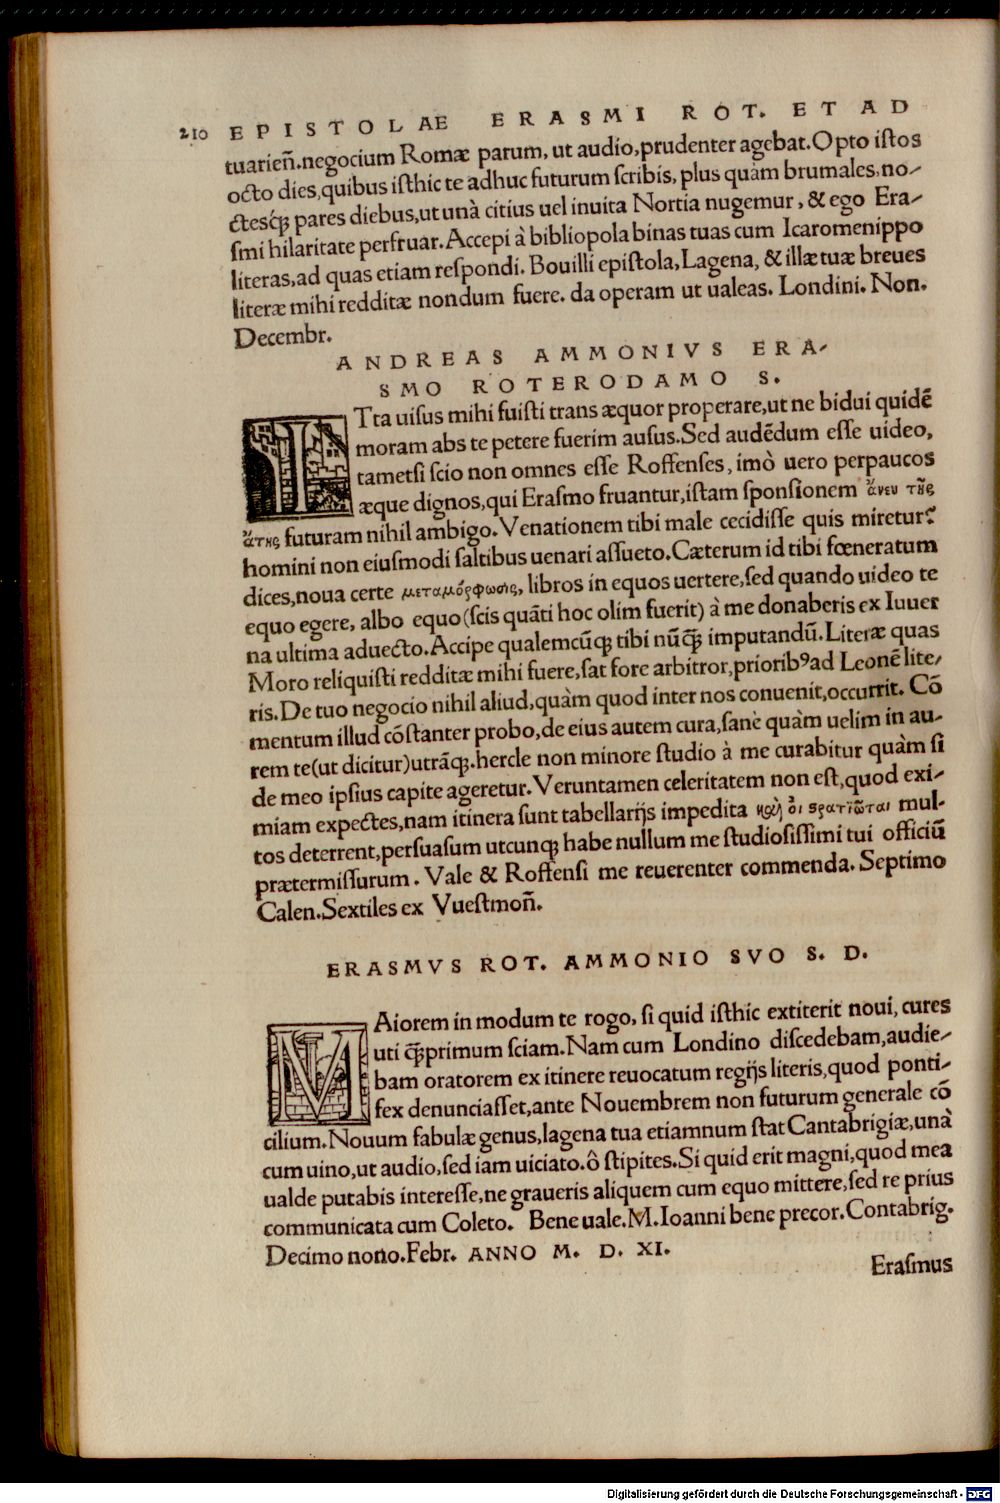 210 EPISTOLAE ERASMI ROT. ET AD
tuarien̄.negocium Romæ parum, ut audio,prudenter agebat.Opto iſtos
octo dies,quibus iſthic te adhuc futurum ſcribis, plus quàm brumales,no-
cteſcꝙ́ pares diebus,ut unà citius uel inuita Nortia nugemur, & ego Era-
ſmi hilaritate perfruar.Accepi à bibliopola binas tuas cum Icaromenippo
literas,ad quas etiam reſpondi. Bouilli epiſtola,Lagena, & illæ tuæ breues
literæ mihi redditæ nondum fuere. da operam ut ualeas. Londini. Non.
Decembr.
ANDREAS AMMONIVS ERA-
SMO ROTERODAMO S.
ITta uiſus mihi fuiſti trans æquor properare,ut ne bidui quidē
moram abs te petere fuerim auſus.Sed audēdum eſſe uideo,
tametſi ſcio non omnes eſſe Roffenſes, imò uero perpaucos
æque dignos,qui Eraſmo fruantur,iſtam ſponſionem ἄνευ τῆς
ἄτης futuram nihil ambigo.Venationem tibi male cecidiſſe quis miretur?
homini non eiuſmodi ſaltibus uenari aſſueto.Cæterum id tibi fœneratum
dices,noua certe μεταμόρφωσις, libros in equos uertere,ſed quando uideo te
equo egere, albo equo(ſcis quāti hoc olim fuerit) à me donaberis ex Iuuer
na ultima aduecto.Accipe qualemcūqꝫ tibi nūꝙ̄ imputandū.Literæ quas
Moro reliquiſti redditæ mihi fuere,ſat fore arbitror,prioribꝰ ad Leonē lite-
ris.De tuo negocio nihil aliud,quàm quod inter nos conuenit,occurrit. Cō
mentum illud cōſtanter probo,de eius autem cura,ſanè quàm uelim in au-
rem te(ut dicitur)utrāqꝫ.hercle non minore ſtudio à me curabitur quàm ſi
de meo ipſius capite ageretur.Veruntamen celeritatem non eſt,quod exi-
miam expectes,nam itinera ſunt tabellarijs impedita καὶ οἱ στρατιῶται mul-
tos deterrent,perſuaſum utcunqꝫ habe nullum me ſtudioſiſſimi tui officiū
prætermiſſurum. Vale & Roffenſi me reuerenter commenda. Septimo
Calen.Sextiles ex Vueſtmon̄.
ERASMVS ROT. AMMONIO SVO S. D.
MAiorem in modum te rogo, ſi quid iſthic extiterit noui, cures
uti ꝙ̄primum ſciam.Nam cum Londino diſcedebam,audie-
bam oratorem ex itinere reuocatum regijs literis,quod ponti-
fex denunciaſſet,ante Nouembrem non futurum generale cō
cilium.Nouum fabulæ genus,lagena tua etiamnum ſtat Cantabrigiæ,unà
cum uino,ut audio,ſed iam uiciato.ô ſtipites.Si quid erit magni,quod mea
ualde putabis intereſſe,ne graueris aliquem cum equo mittere,ſed re prius
communicata cum Coleto. Bene uale.M.Ioanni bene precor.Contabrig.
Decimo nono.Febr. ANNO M. D. XI.
Eraſmus
Digitalisierung gefördert durch die Deutsche Forschungsgemeinschaft - DFG